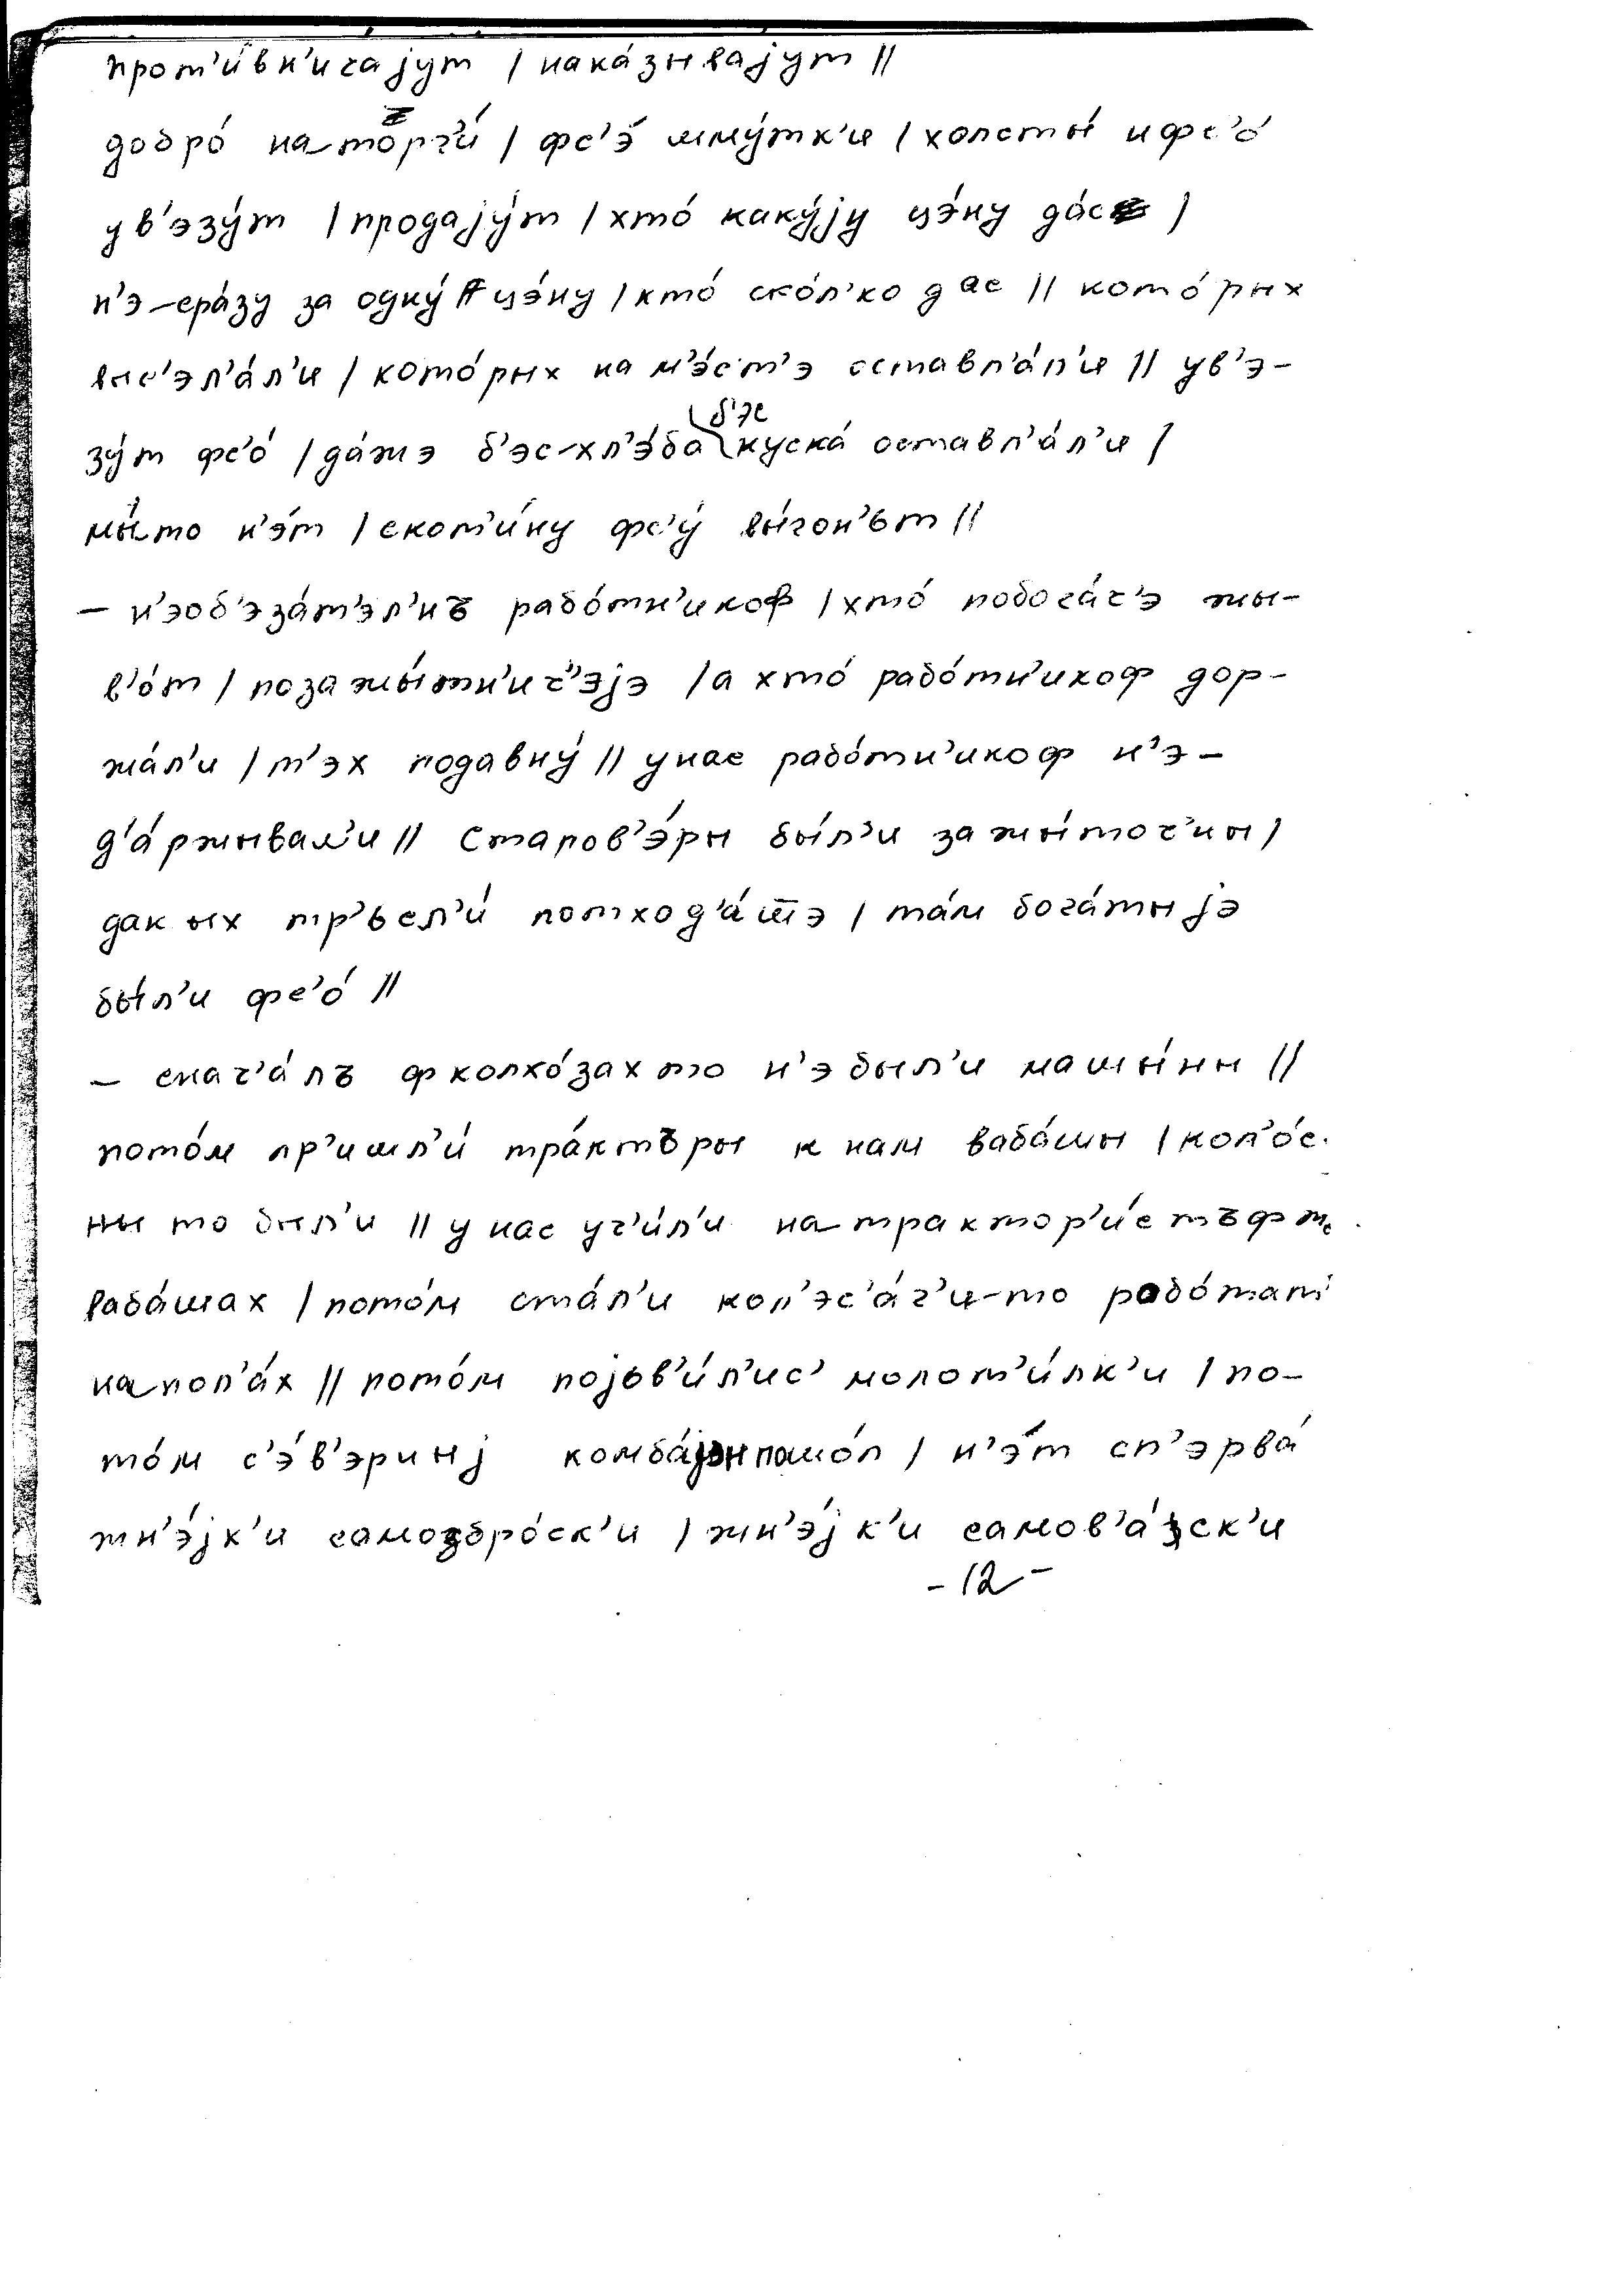 прот'и́вн'ичајут / нака́зывајут //
добро́ на торги́ / фс'э́ шму́тк'и / холсты́ и фс'о́
ув'эзу́т / продају́т / хто́ каку́јy цэ́ну да́с /
н'э-сра́зу за одну́ цэ́ну / кто́ ско́л'ко дас // кото́рых
выс'эл'а́л'и / кото́рых на м'э́ст'э оставл'а́л'и // ув'э-
зу́т фс'о́ / да́жэ б'эс-хл'э́ба б'эс куска́ оставл'а́л'и /
мы́то н'э́т / скот'и́ну фс'у́ вы́гон'ьт //
– н'эоб'эза́т'эл'нъ рабо́тн'икоф / хто́ побога́ч'э жы-
в'о́т / позажы́тн'ич'эјэ / а хто́ рабо́тн'икоф дор-
жа́л'и / т'эх подавну́ // у нас рабо́тн'икоф н'э-
д'а́ржывал'и // старов'э́ры бы́л'и зажы́точ'ны /
дак ых тр'ьсл'и́ потход'а́шэ / та́м бога́тыјэ
бы́л'и фс'о́ //
– снач'а́лъ ф колхо́зах то н'э был'и машы́ны //
пото́м пр'ишл'и́ тра́кторы к нам ваба́шы / кол'о́с.
ны то был'и // у нас уч'и́л'и на трактор'и́стъф
ваба́шах / пото́м ста́л'и кол'эс'а́ч'и-то рабо́тат'
на пол'а́х // пото́м појьв'и́л'ис' молот'и́лк'и / по-
то́м с'э́в'эриныј комба́јън пошо́л / н'э́т сп'эрва́
жн'э́јк'и самозбро́ск'и / жн'э́јк'и самов'а́зск'и
- 12 -